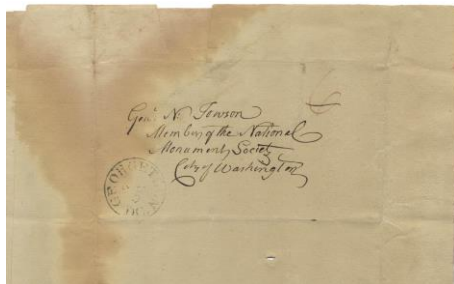 Genl. N. Towson
Member of the National
Monument Society
City of Washington
GEORGET